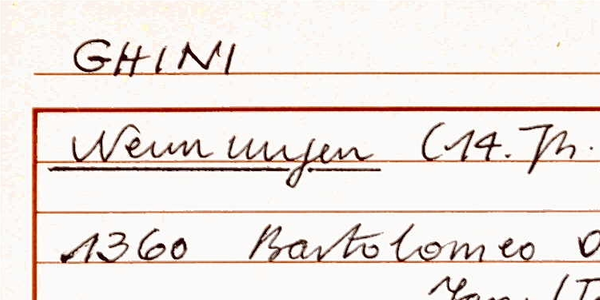 GHINI
Nennungen (14. Jh.
1360 Bartolomeo